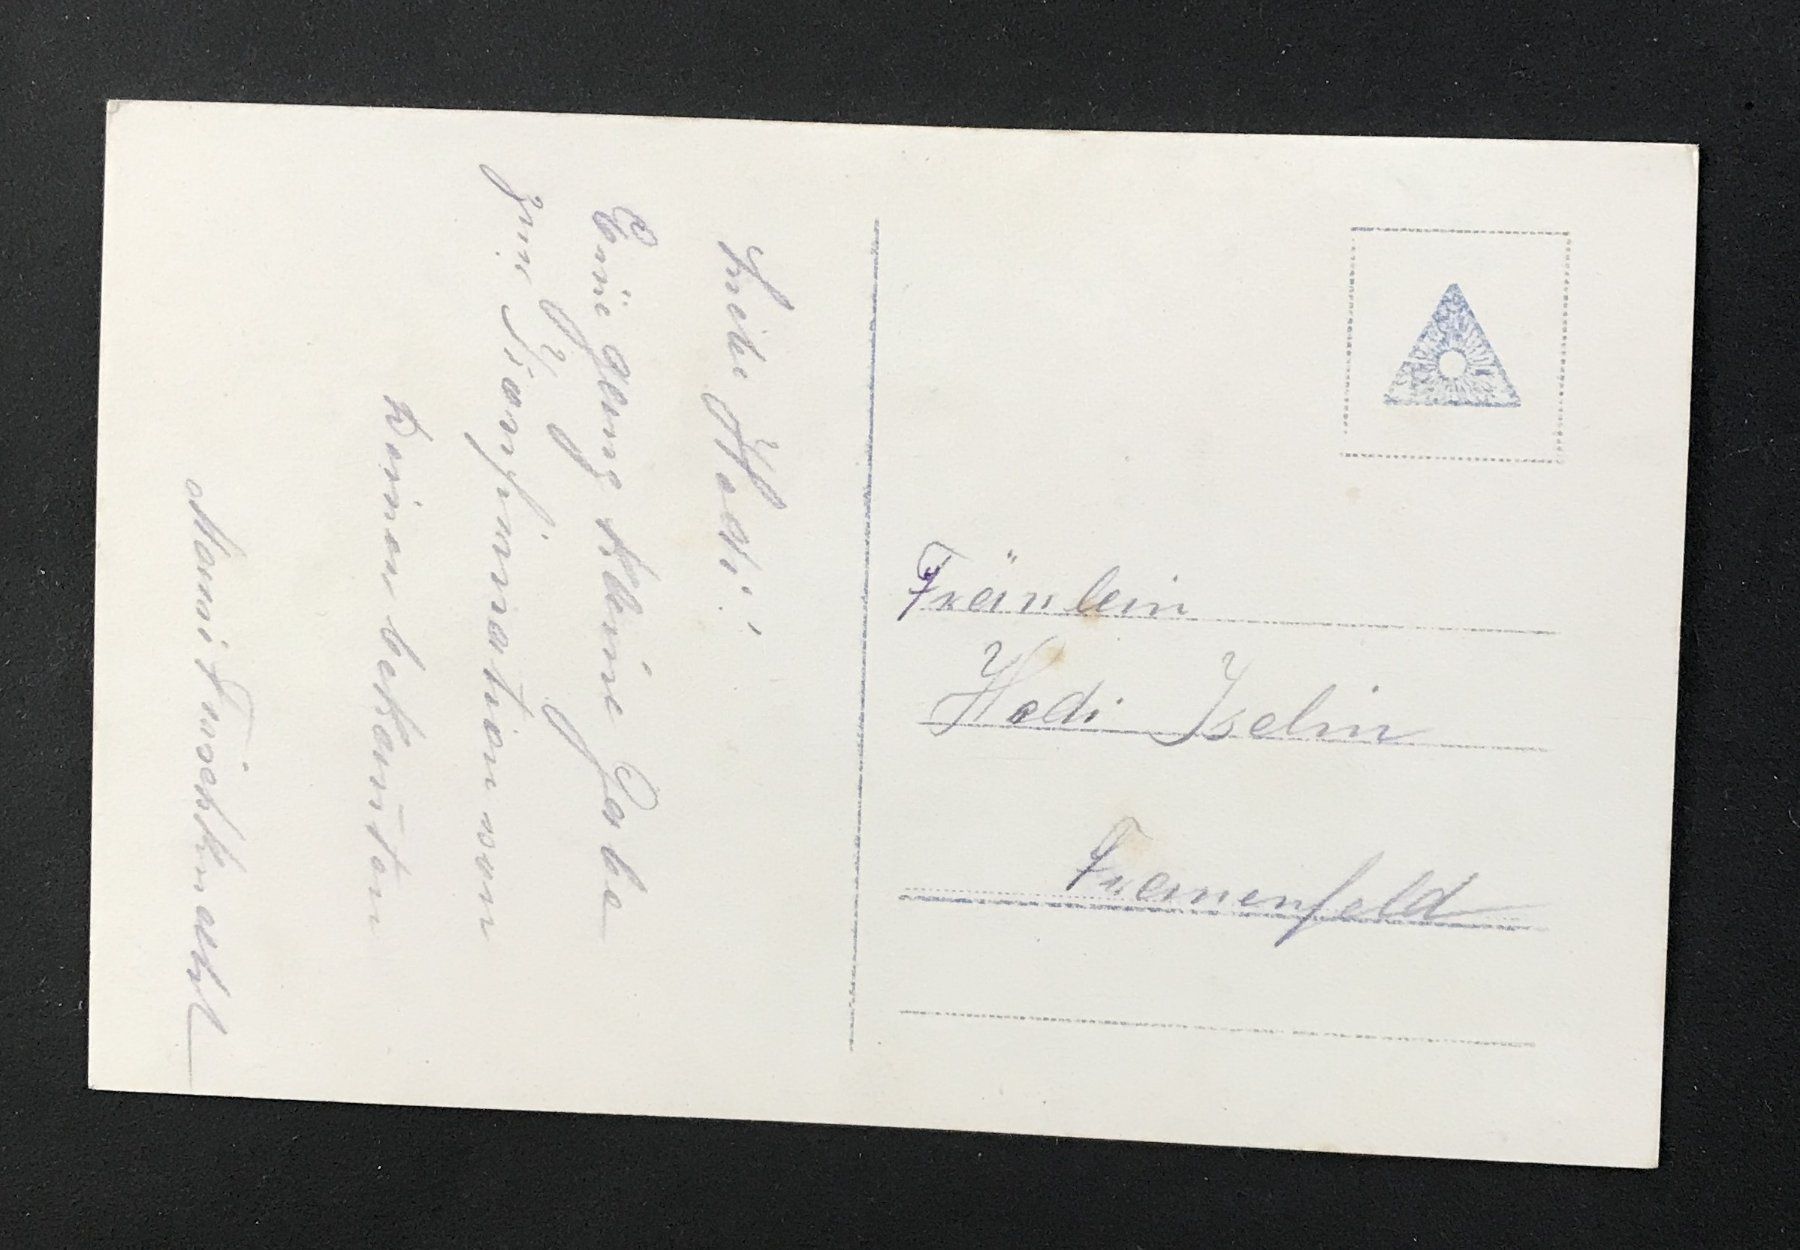 Liebe Hedi!
Eine ganz kleine Gabe
zur Confirmation von
Deinen bekannten
Fräulein
Hedi Iselin
Frauenfeld